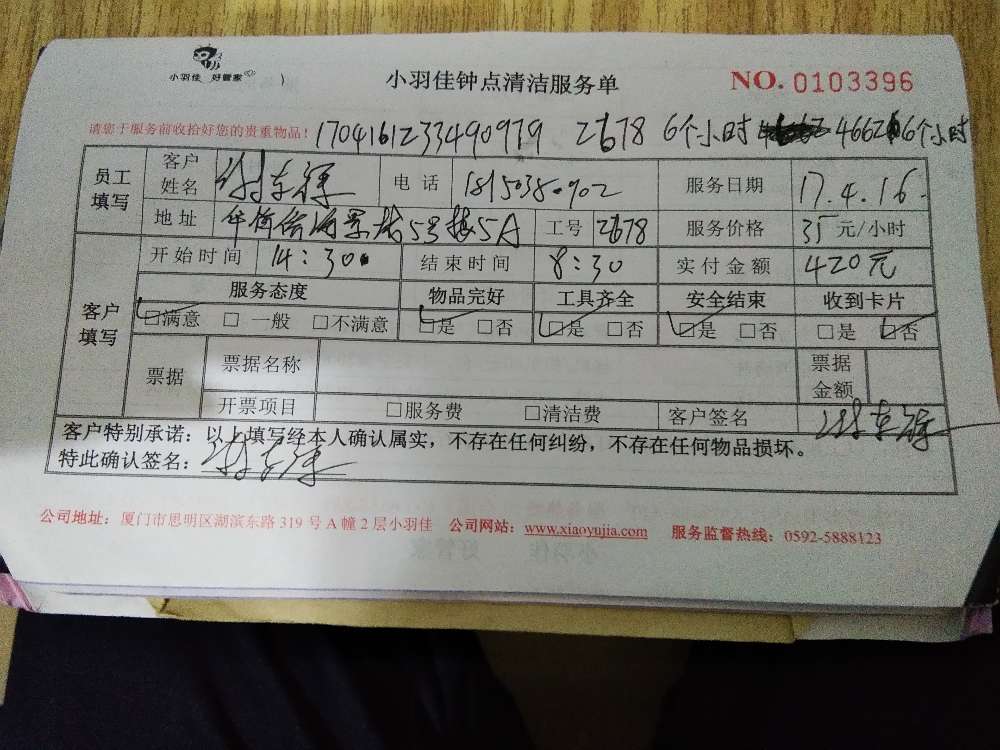 小羽佳 好管家
小羽佳钟点清洁服务单 NO. 0103396
请您于服务前收拾好您的贵重物品! 1704161233490979 2678 6个小时 4662 6个小时
员工填写 客户姓名 电话 服务日期 17.4.16
地址 5号楼5A 工号 2678 服务价格 35元/小时
客户填写 开始时间 14:30 结束时间 8:30 实付金额 420元
服务态度 物品完好 工具齐全 安全结束 收到卡片
□满意 □一般 □不满意 □是 □否 □是 □否 □是 □否 □是 □否
票据 票据名称 票据金额
开票项目 □服务费 □清洁费 客户签名
客户特别承诺:以上填写经本人确认属实,不存在任何纠纷,不存在任何物品损坏。
特此确认签名:
公司地址:厦门市思明区湖滨东路319号A幢2层小羽佳 公司网站:www.xiaoyujia.com 服务监督热线:0592-5888123